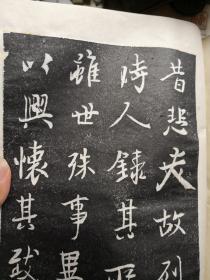 昔悲夫故列
時人錄其所
雖世殊事異
以興懷其致